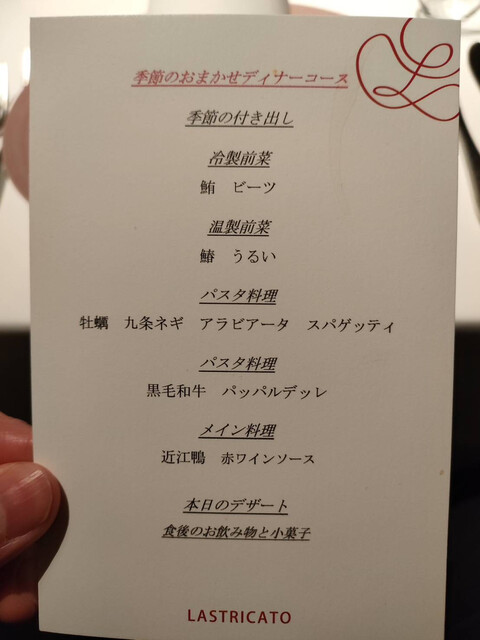 季節のおまかせディナーコース
季節の付き出し
冷製前菜
鮪　ビーツ
温製前菜
鰆　うるい
パスタ料理
牡蠣　九条ネギ　アラビアータ　スパゲッティ
パスタ料理
黒毛和牛　パッパルデッレ
メイン料理
近江鴨　赤ワインソース
本日のデザート
食後のお飲み物と小菓子
LASTRICATO